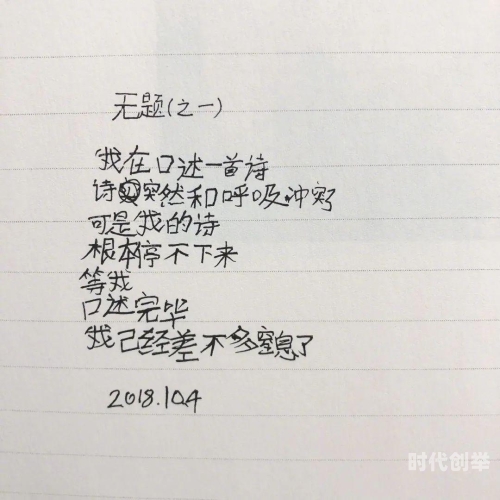 无题(之一)
我在口述一首诗
诗突然和呼吸冲突了
可是我的诗
根本停不下来
等我
口述完毕
我己经差不多窒息了
2018.10.4
时代创举